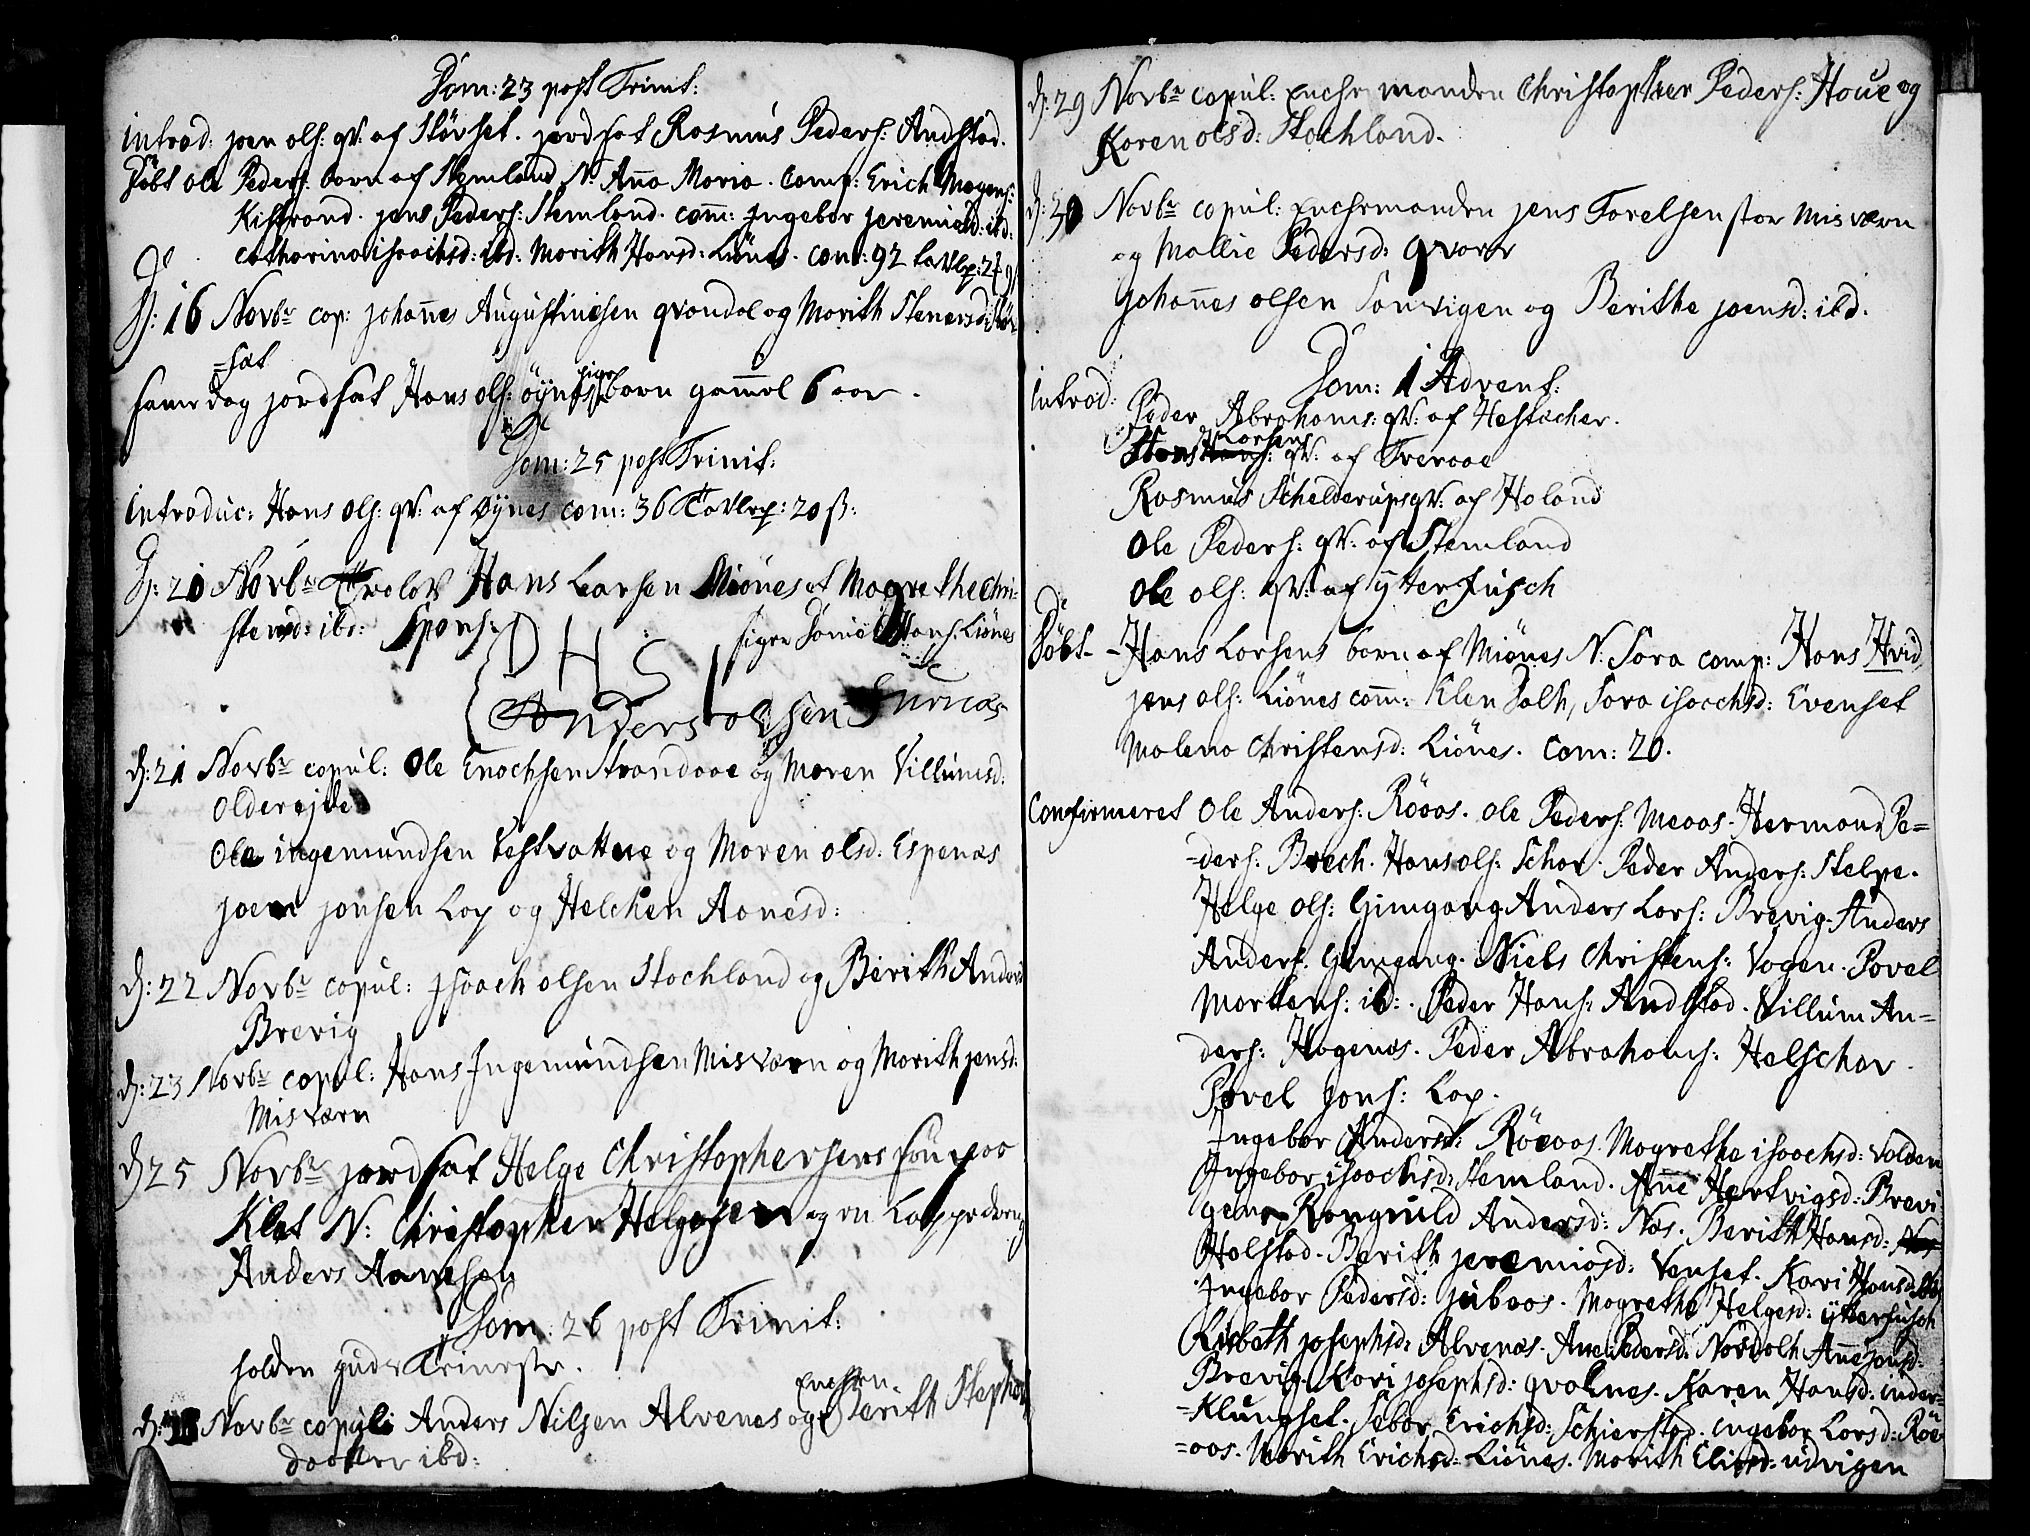 Dom: 23 post Trinit:
introd: joen ols: qv: af Störset. jordsat Rasmus Peders: Andstad.
Döbt Ole Peders: barn af Stemland N: Anna Maria. Comp: Erich Mogens:
Kistrand. jens Peders: Stemland. com: Ingebor jeremiasd: ibd:
Catharina isaachsd: ibd: Marith Hansd: Liönes. Com: 92
D: 16 Novbr cop: Johannes Augustinesen qvandal og Marith Stenersd: Stör-
=set
samedag jordsat Hans ols: öynes pige barn gammel 6 aar.
Dom: 25 post Trinit:
introduc: Hans Ols: qv: af Øynes com: 36 Tavlep: 20 ß:
D: 20 Novbr Trolov Hans Larsen Miönes et Magrethe Chri-
stensd: ibd: Spons:
D H S
siger Daniel Hans: Liönes
Anders olsen
D: 21 Novbr copul: Ole Enochsen Strandaae og Maren Villumsd:
Oldereide
Ole ingemundsen Testvattne og Maren olsd: Espenæs
joen jonsen Lap og Helchen Aanesd:
D: 22 Novbr copul: Isaach olsen Stochland og Berith Andersd
Brevig
D: 23 Novbr copul: Hans Ingemundsen Misværn og Marith jensd:
Misværn
D 25 Novbr jordsat Helge Christophersens søn paa
Klæt N: Christopher Helgesen og en Lappedreng
Anders Aanesen
Dom: 26 post Trinit:
holden guds tieneste.
D: 28 Novbr copul: Anders Nilsen Alvenes og Enchen Berith Stephens
daatter ibd:
D: 29 Novbr copul: Enchemanden Christopher Peders: Houe og
Karen olsd: Stochland.
D: 30 Novbr copul: Enchemanden jens Torelsen stor Misværn
og Mallie Pedersd: Qvarv
Johannes olsen Sanvigen og Berithe joensd: ibd.
Dom: 1 Advent:
introd:
Peder Abrahams: qv: af Hestacher.
Larsens qv: af Fveraae
Rasmus Schelderups qv: af Haland
Ole Peders: qv: af Stemland
Ole ols: qv: af ytterfusch
Döbt - Hans Larsens barn af Miönes N: Sara comp: Hans Hvid,
jens ols: Liönes com: Elen Dalh, Sara isaachsd: Evenset
Malena Christensd: Liönes. Com: 20.
Confirmeret Ole Anders: Röaas. Ole Peders: Meaas. Hermand Pe-
=ders: Brech. Hans ols: Schar. Peder Anders: Stelpe.
Helge ols: Gimgang. Anders Lars: Brevig. Anders
Anders: Gimgang. Niels Christens: Vogen. Povel
Mortens: ibd: Peder Hans: Andstad. Villum An-
ders: Hogenæs. Peder Abrahams: Helschar.
Povel Jons: Lap.
Ingebor Andersd: Röeaas. Magrethe isaachsd: Valden
Ingebor isaachsd: Stemland. Anne Hertvigsd: Brevi
gen. Rangnild Andersd: Næs. Berith Hansd:
Halstad. Berith jeremiasd: Venset. Kari Hansd: ibd
Ingebor Pedersd: jubaas. Magrethe Helgesd: ytterfusch
Lisbeth josephsd: Alvenæs. Ane Pedersd: Nordalh Anne jensd:
Brevig. Kari josephsd: qvalnes. Karen Hansd: inder-
=Klungset. Sebor Erichsd: Schierstad. ingebor Larsd: Röe-
=aas. Marith Erichsd: Liönes. Marith Eliasd: udvigen